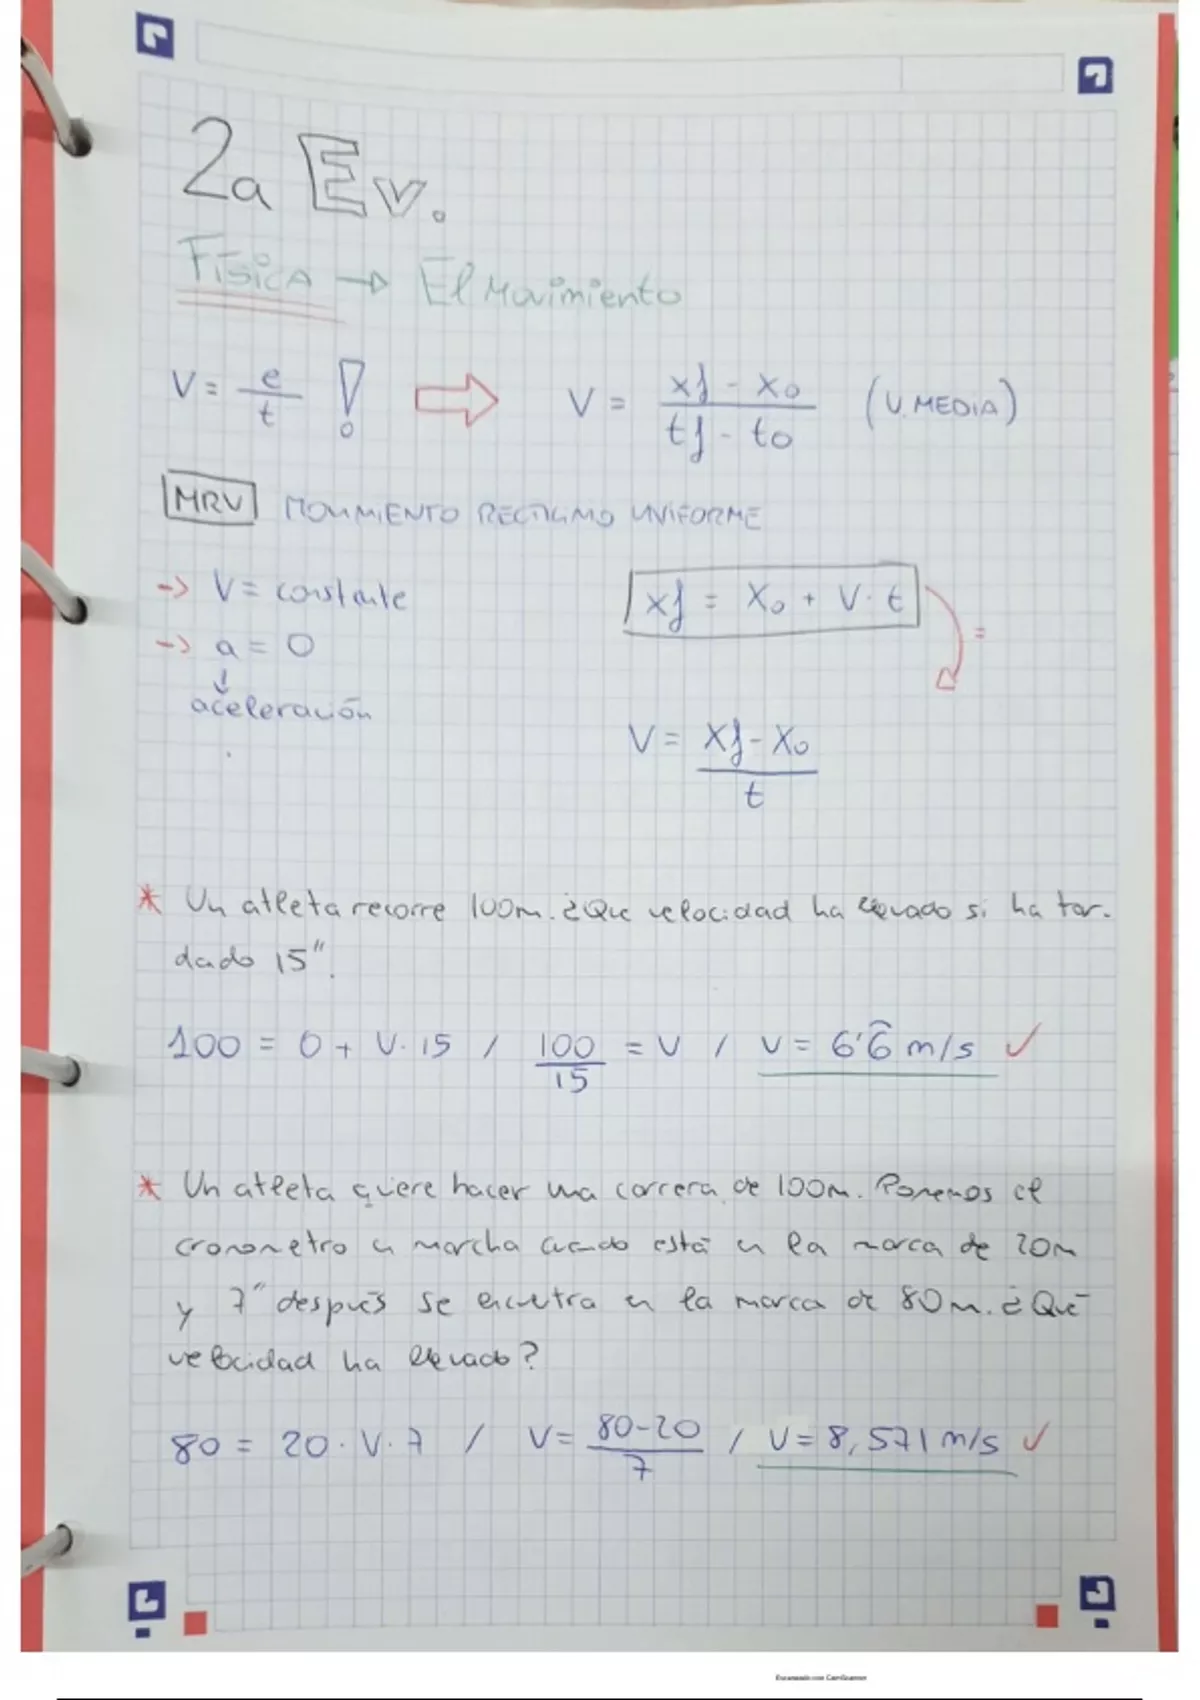 2a Ev.
Física → El Movimiento
V = e/t ! ⇒ V = xf - x0 / tf - t0 (V. MEDIA)
MRU MOVIMIENTO RECTILINIO UNIFORME
-> V = constante
xf = x0 + V · t =
-> a = 0
↓
aceleración
V = xf - x0 / t
* Un atleta recorre 100m. ¿Que velocidad ha llevado si ha tar-
dado 15".
100 = 0 + V · 15 / 100/15 = V / V = 6'6̂ m/s ✓
* Un atleta quiere hacer una carrera de 100m. Ponemos el
cronometro en marcha cuando está en la marca de 20m
y 7" después se encuetra en la marca de 80m. ¿Qué
velocidad ha llevado?
80 = 20 · V · 7 / V = 80-20/7 / V = 8,571 m/s ✓
Escaneado con CamScanner